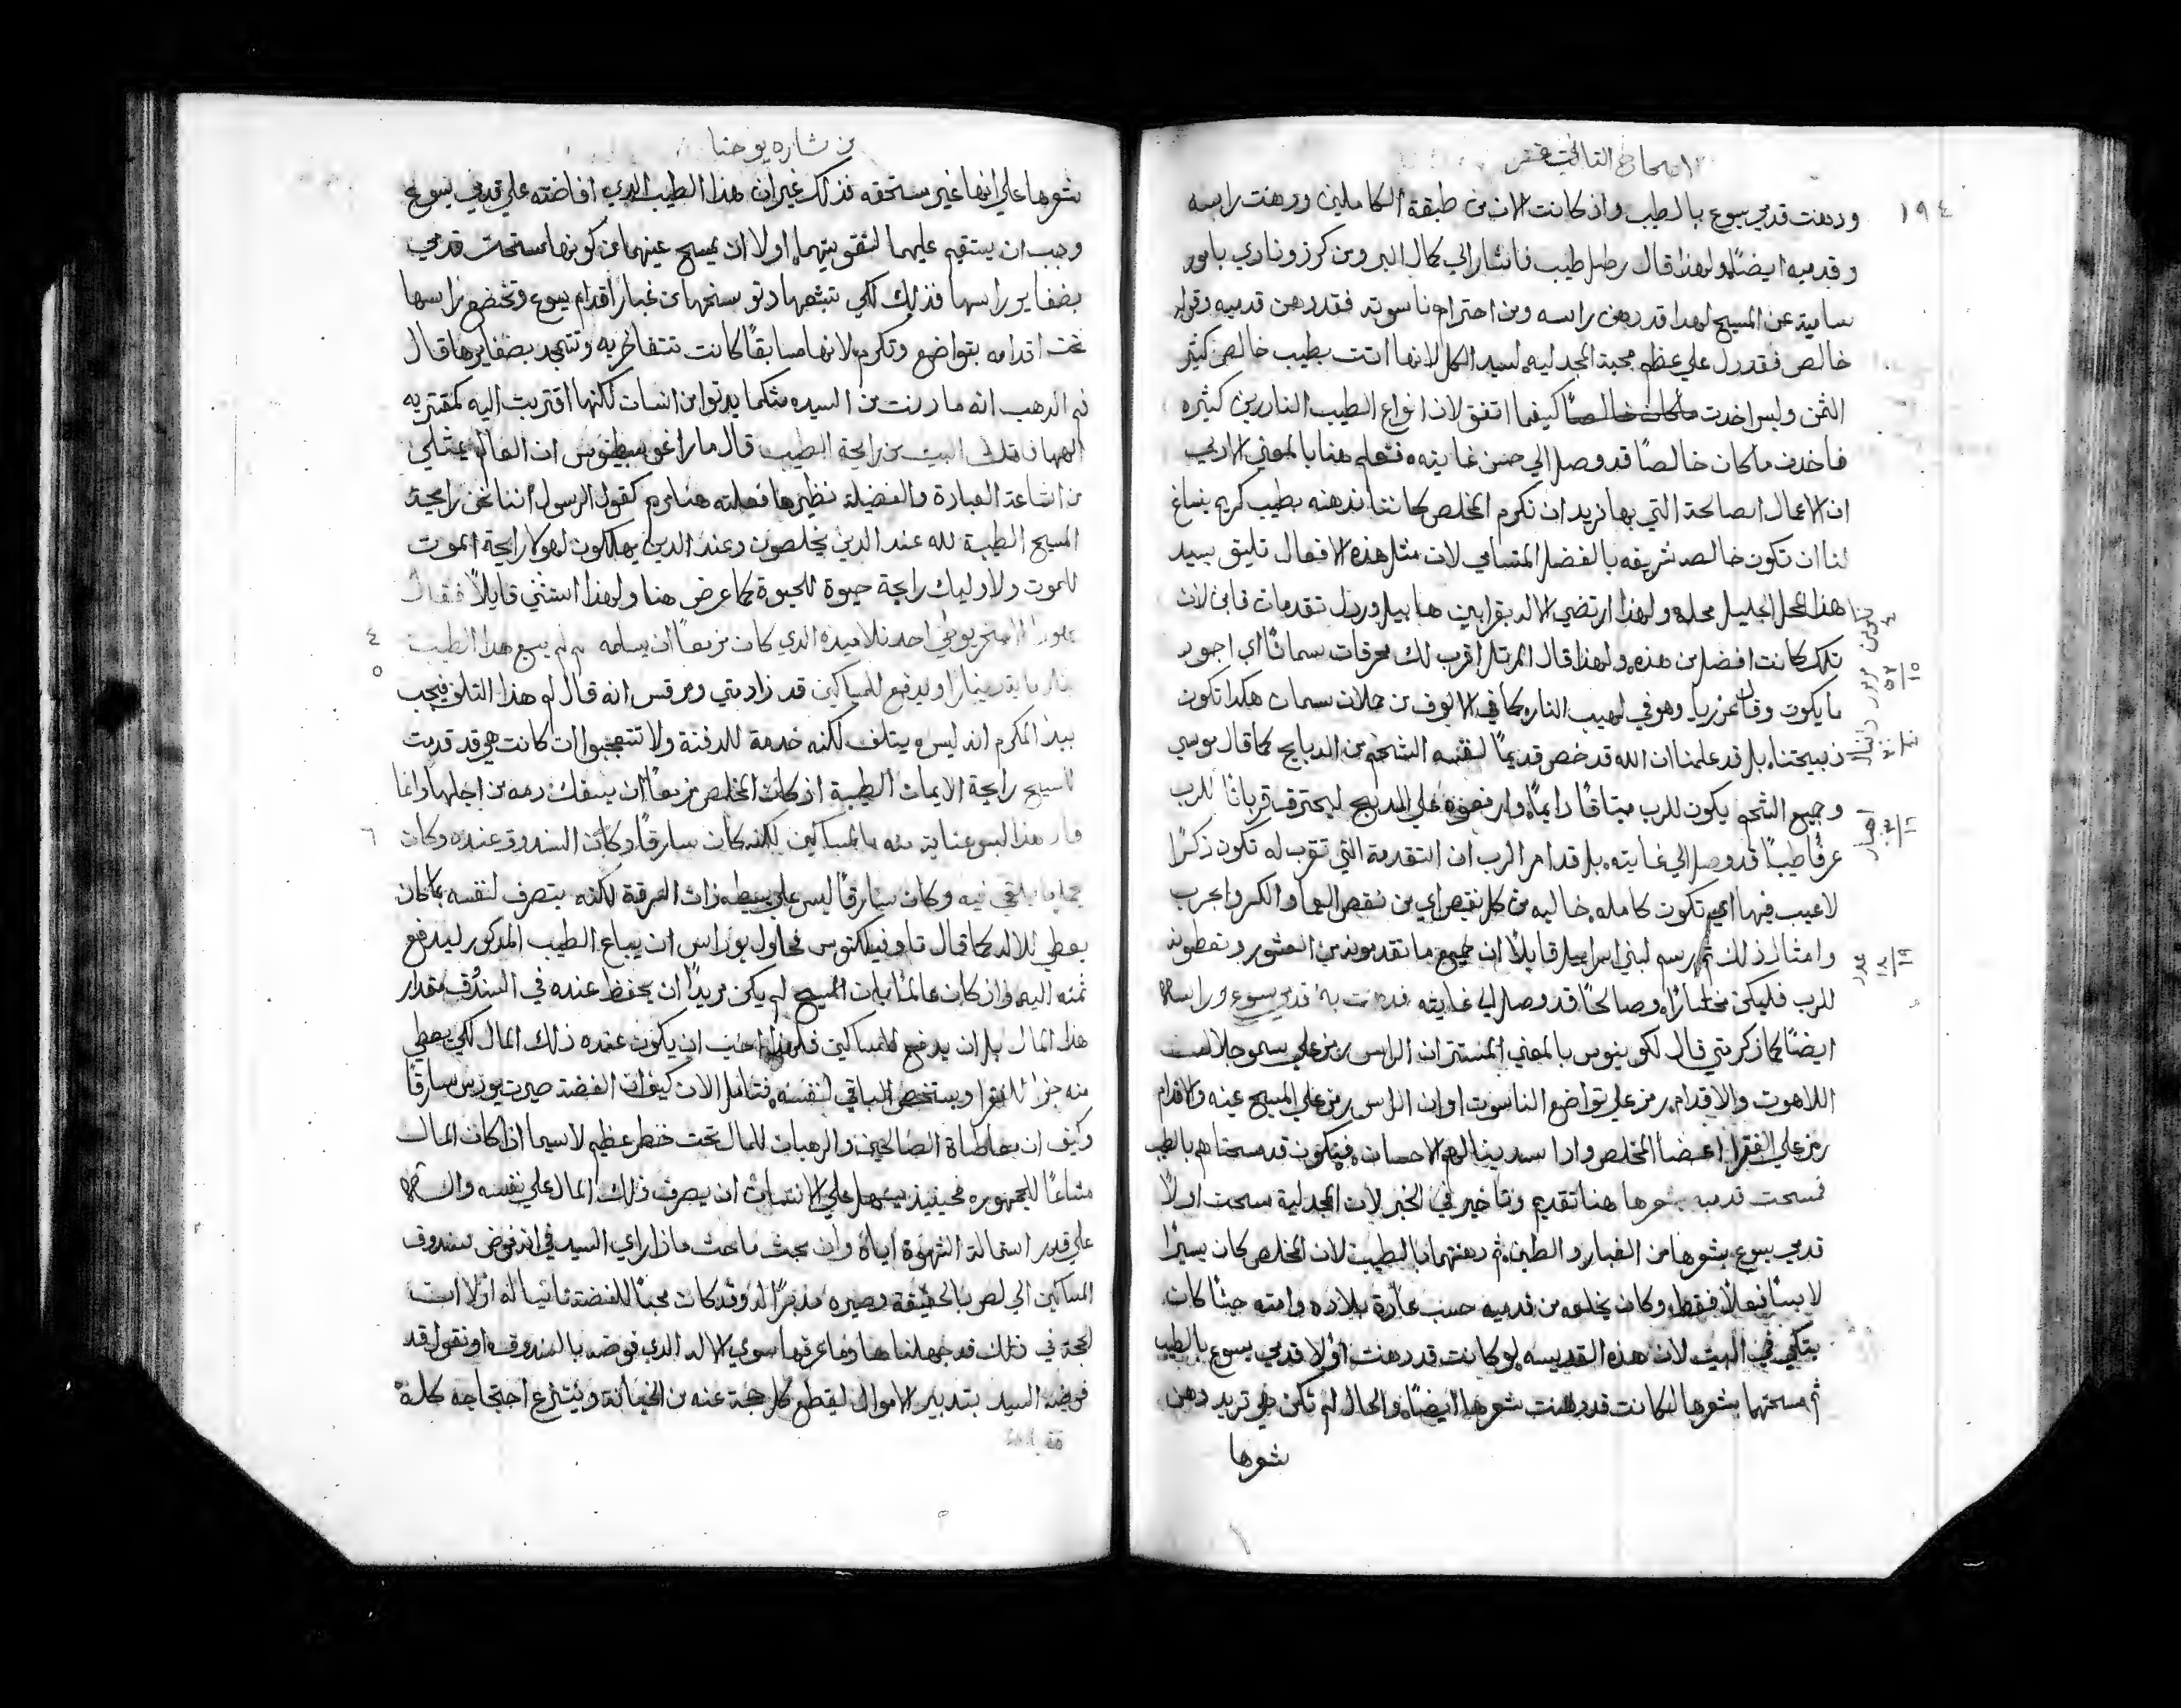 الاصحاح الثاني عشر
١٩٤
ودهنت قدمي يسوع بالطيب واذ كانت الان من طبقة الكاملين ودهنت راسه
وقدميه ايضًا ولهذا قال رطل طيب فاشار الي كمال البر ومن كرز ونادي بامور
سامية عن المسيح لهذا قد دهن راسه ومن احترام ناسوته فقد دهن قدميه وقوله
خالص فقد دل علي عظم محبة المجدليه لسيد الكل لانها اتت بطيب خالص كثير
الثمن وليس اخدت ماكان خالصًا كيفما اتفق لان انواع الطيب الناردين كثيره
فاخدت ماكان خالصًا قد وصل الي حسن غايته فنتعلم هنا بالمعني الادبي
ان الاعمال الصالحة التي بها نريد ان نكرم المخلص كاننا ندهنه بطيب كريم ينباغ
لنا ان تكون خالصه شريفه بالفضل المتسامي لان مثل هذه الافعال تليق بسيد
هذا المحل الجليل محله ولهذا ارتضي الاله بقرابين هابيل وردل تقدمات قاين لان
تلك كانت افضل من هذه ولهذا قال المرتل اقرب لك محرقات سمانًا اي اجود
ما يكون وقال عزريا وهو في لهيب النار كما في الالوف من حملان سمان هكدا تكون
ذبيحتنا بل قد علمنا ان الله قد خص قديمًا لنفسه الشحم من الدبايح كما قال موسي
وجميع الشحم يكون للرب ميتاقًا دايمًا وارفعوه علي المدبح ليحترق قربانًا للرب
عرفًا طيبًا قد وصل الي غايته بل قدام الرب ان التقدمة التي تقرب له تكون ذكرًا
لاعيب فيها اي تكون كامله خاليه من كل نقص اي من نقص العما والكسر والجرب
وامثال ذلك ثم رسم لبني اسراييل قايلًا ان جميع ما تقدمونه من العشور وتعطونه
للرب فليكن مختارًا وصالحًا قد وصل الي غايته فدهنت به قدمي يسوع وراسه
ايضًا كما ذكر متي قال لكو ينوس بالمعني المستتر ان الراس رمز علي سمو جلالة
اللاهوت والاقدام رمز علي تواضع الناسوت او ان الراس رمز علي المسيح عينه والاقدام
رمز علي الفقرا اعضا المخلص واذا اسدينا لهم الاحسان فنكون قد مسحناهم بالطيب
فمسحت قدميه بشعرها هنا تقديم وتاخير في الخبر لان المجدلية مسحت اولًا
قدمي يسوع بشعرها من الغبار والطين ثم دهنتهما بالطيب لان المخلص كان يسير
لابسًا نعلًا فقط وكان يخلعه من قدميه حسب عادة بلاده وامته حيثما كان
يتكي في البيت لان هذه القديسه لو كانت قد دهنت اولًا قدمي يسوع بالطيب
ثم مسحتهما بشعرها لكانت قد دهنت شعرها ايضًا والحال لم تكن هي تريد دهن
شعرها
تكوين ٤
مزمور ١٥ ٥٢
دنيال
احبار ١٦ ٣
عدد ١٨ ٢٩
من بشاره يوحنا
شعرها علي انها غير مستحقه فذلك غير ان هذا الطيب الدي افاضته علي قدمي يسوع
وجب ان يستقيم عليهما لتقويتهما اولا ان يمسح عينهما من كونها مسحت قدمي
بضفاير راسها فذلك لكي تبتهها دنو سنخها من غبار اقدام يسوع وتخضع راسها
تحت اقدامه بتواضع وتكرم لانها سابقًا كانت تتفاخر به وتتمجد بضفايرها قال
فم الدهب انه ما دنت من السيده مثلما يدنوا من انسان لكنها اقتربت اليه كمقتربه
الهها فامتلا البيت من رايحة الطيب قال مار اغوسطينوس ان العالم يمتلي
من اشاعة العبادة والفضيلة نظير ما فعلته هنا مريم كقول الرسول اننا نحن رايحة
المسيح الطيبة لله عند الدين يخلصون وعند الدين يهلكون لهولا رايحة الموت
للموت ولاوليك رايحة حيوة للحيوة كما عرض هنا ولهذا استثني قايلًا فقال
يهودا الاسخريوطي احد تلاميذه الدي كان مزمعًا ان يسلمه لم لم يبع هدا الطيب ٤
بثلاثماية دينارًا ويدفع للمساكين قد زاد متي ومرقس انه قال لم هذا التلف فيجب ٥
بيدا المكرم انه ليس يتلف لكنه خدمة للدفنة ولا تتعجبوا ان كانت هي قد قدمت
للمسيح رايحة الايمان الطيبة اذ كان المخلص مزمعًا ان يسفك دمه من اجلها وانما
قال هذا ليس عناية منه بالمساكين لكنه كان سارقًا وكان السندوق عنده وكان ٦
يحمل ما يلقي فيه وكان سارقًا ليس علي بسيطه ذات السرقة لكنه يتصرف لنفسه بما كان
يعطي للاله كما قال تاوفيلكتوس فحاول يوداس ان يباع الطيب المدكور ليدفع
ثمنه اليه واذ كان عالمًا بان المسيح لم يكن مريدًا ان يحفظ عنده في السندق مقدار
هذا المال بل ان يدفع للمساكين فلهذا احب ان يكون عنده ذلك المال لكي يعطي
منه جزا للفقرا ويستخص الباقي لنفسه فتامل الان كيف ان الفضة صيرت يوداس سارقًا
وكيف ان معاطاة الصالحين والرهبان للمال تحت خطر عظيم لاسيما اذا كان المال
مشاعًا للجمهوره فحينيذ يسهل علي الانسان ان يصرف ذلك المال علي نفسه
علي قدر استمالة الشهوة اياه وان بحث باحث ماذا راي السيد في انه فوض سندوق
المساكين الي لص بالحقيقة وصيره مدبرًا له وقد كان محبًا للفضة
لجة في ذلك قد جهلناها وما عرفها سوي الاله الدي فوضه بالسندوق او نقول قد
فوضه السيد بتدبير الاموال ليقطع كل حجة عنه من الخيانة وينتزع احتجاجه كله